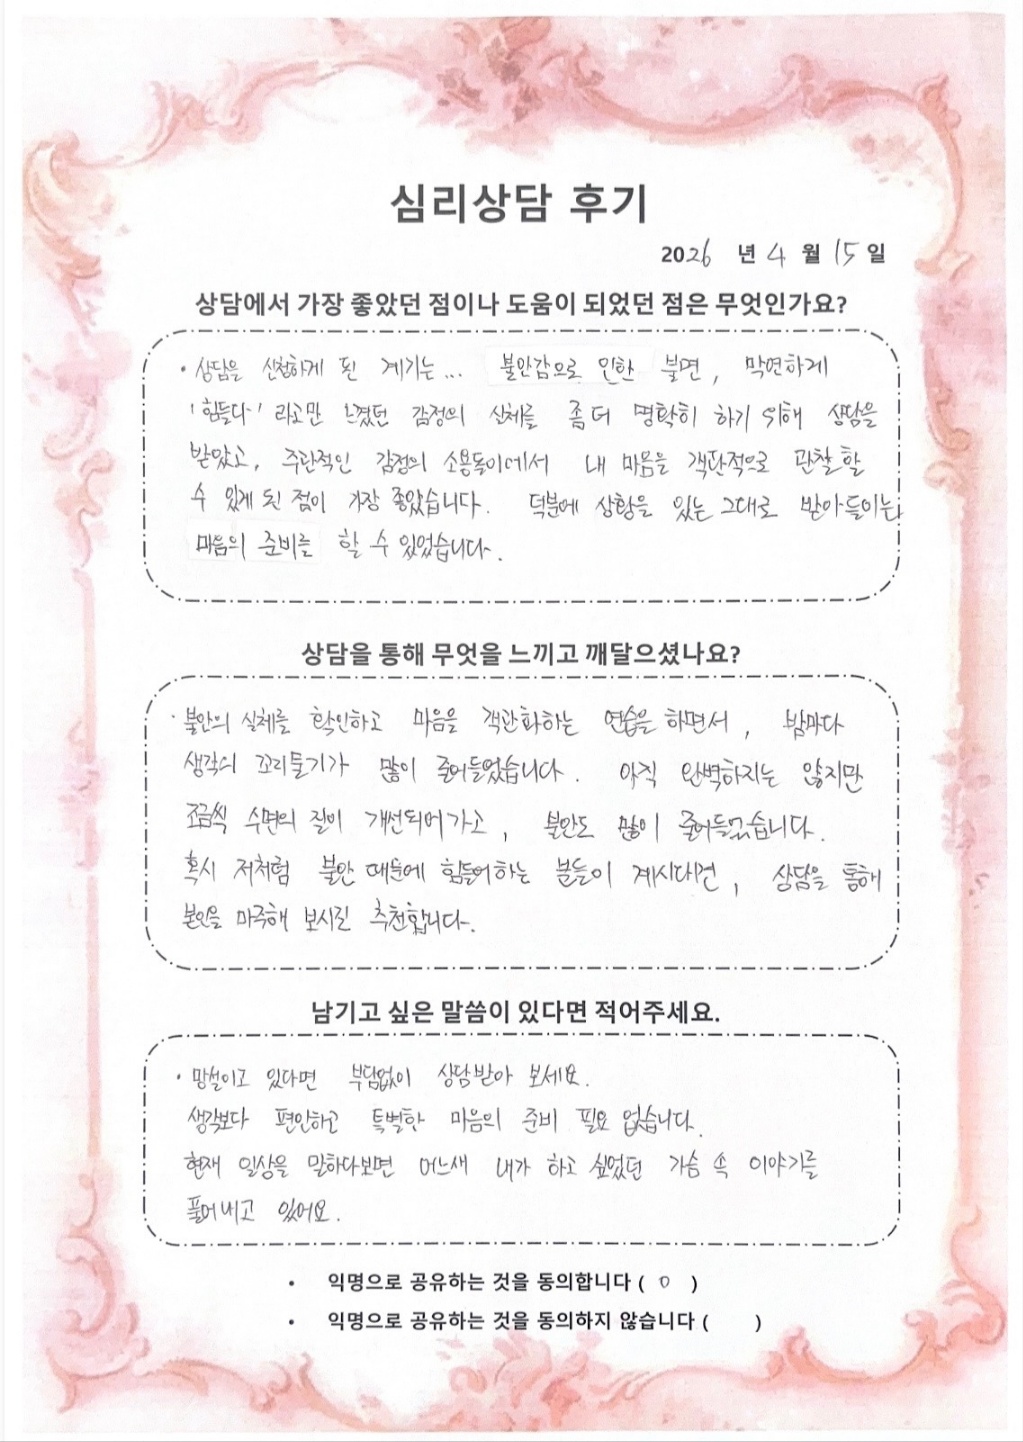 심리상담 후기
2026 년 4 월 15 일
상담에서 가장 좋았던 점이나 도움이 되었던 점은 무엇인가요?
• 상담을 신청하게 된 계기는... 불안감으로 인한 불면, 막연하게
'힘들다' 라고만 느꼈던 감정의 실체를 좀 더 명확히 하기 위해 상담을
받았고, 주관적인 감정의 소용돌이에서 내 마음을 객관적으로 관찰할
수 있게 된 점이 가장 좋았습니다. 덕분에 상황을 있는 그대로 받아들이는
마음의 준비를 할 수 있었습니다.
상담을 통해 무엇을 느끼고 깨달으셨나요?
· 불안의 실체를 확인하고 마음을 객관화하는 연습을 하면서, 밤마다
생각의 꼬리물기가 많이 줄어들었습니다. 아직 완벽하지는 않지만
조금씩 수면의 질이 개선되어가고, 불안도 많이 줄어들었습니다.
혹시 저처럼 불안 때문에 힘들어하는 분들이 계시다면, 상담을 통해
본인을 마주해 보시길 추천합니다.
남기고 싶은 말씀이 있다면 적어주세요.
• 망설이고 있다면 부담없이 상담받아 보세요.
생각보다 편안하고 특별한 마음의 준비 필요 없습니다.
현재 일상을 말하다보면 어느새 내가 하고 싶었던 가슴 속 이야기를
풀어내고 있어요.
• 익명으로 공유하는 것을 동의합니다 ( O )
• 익명으로 공유하는 것을 동의하지 않습니다 ( )